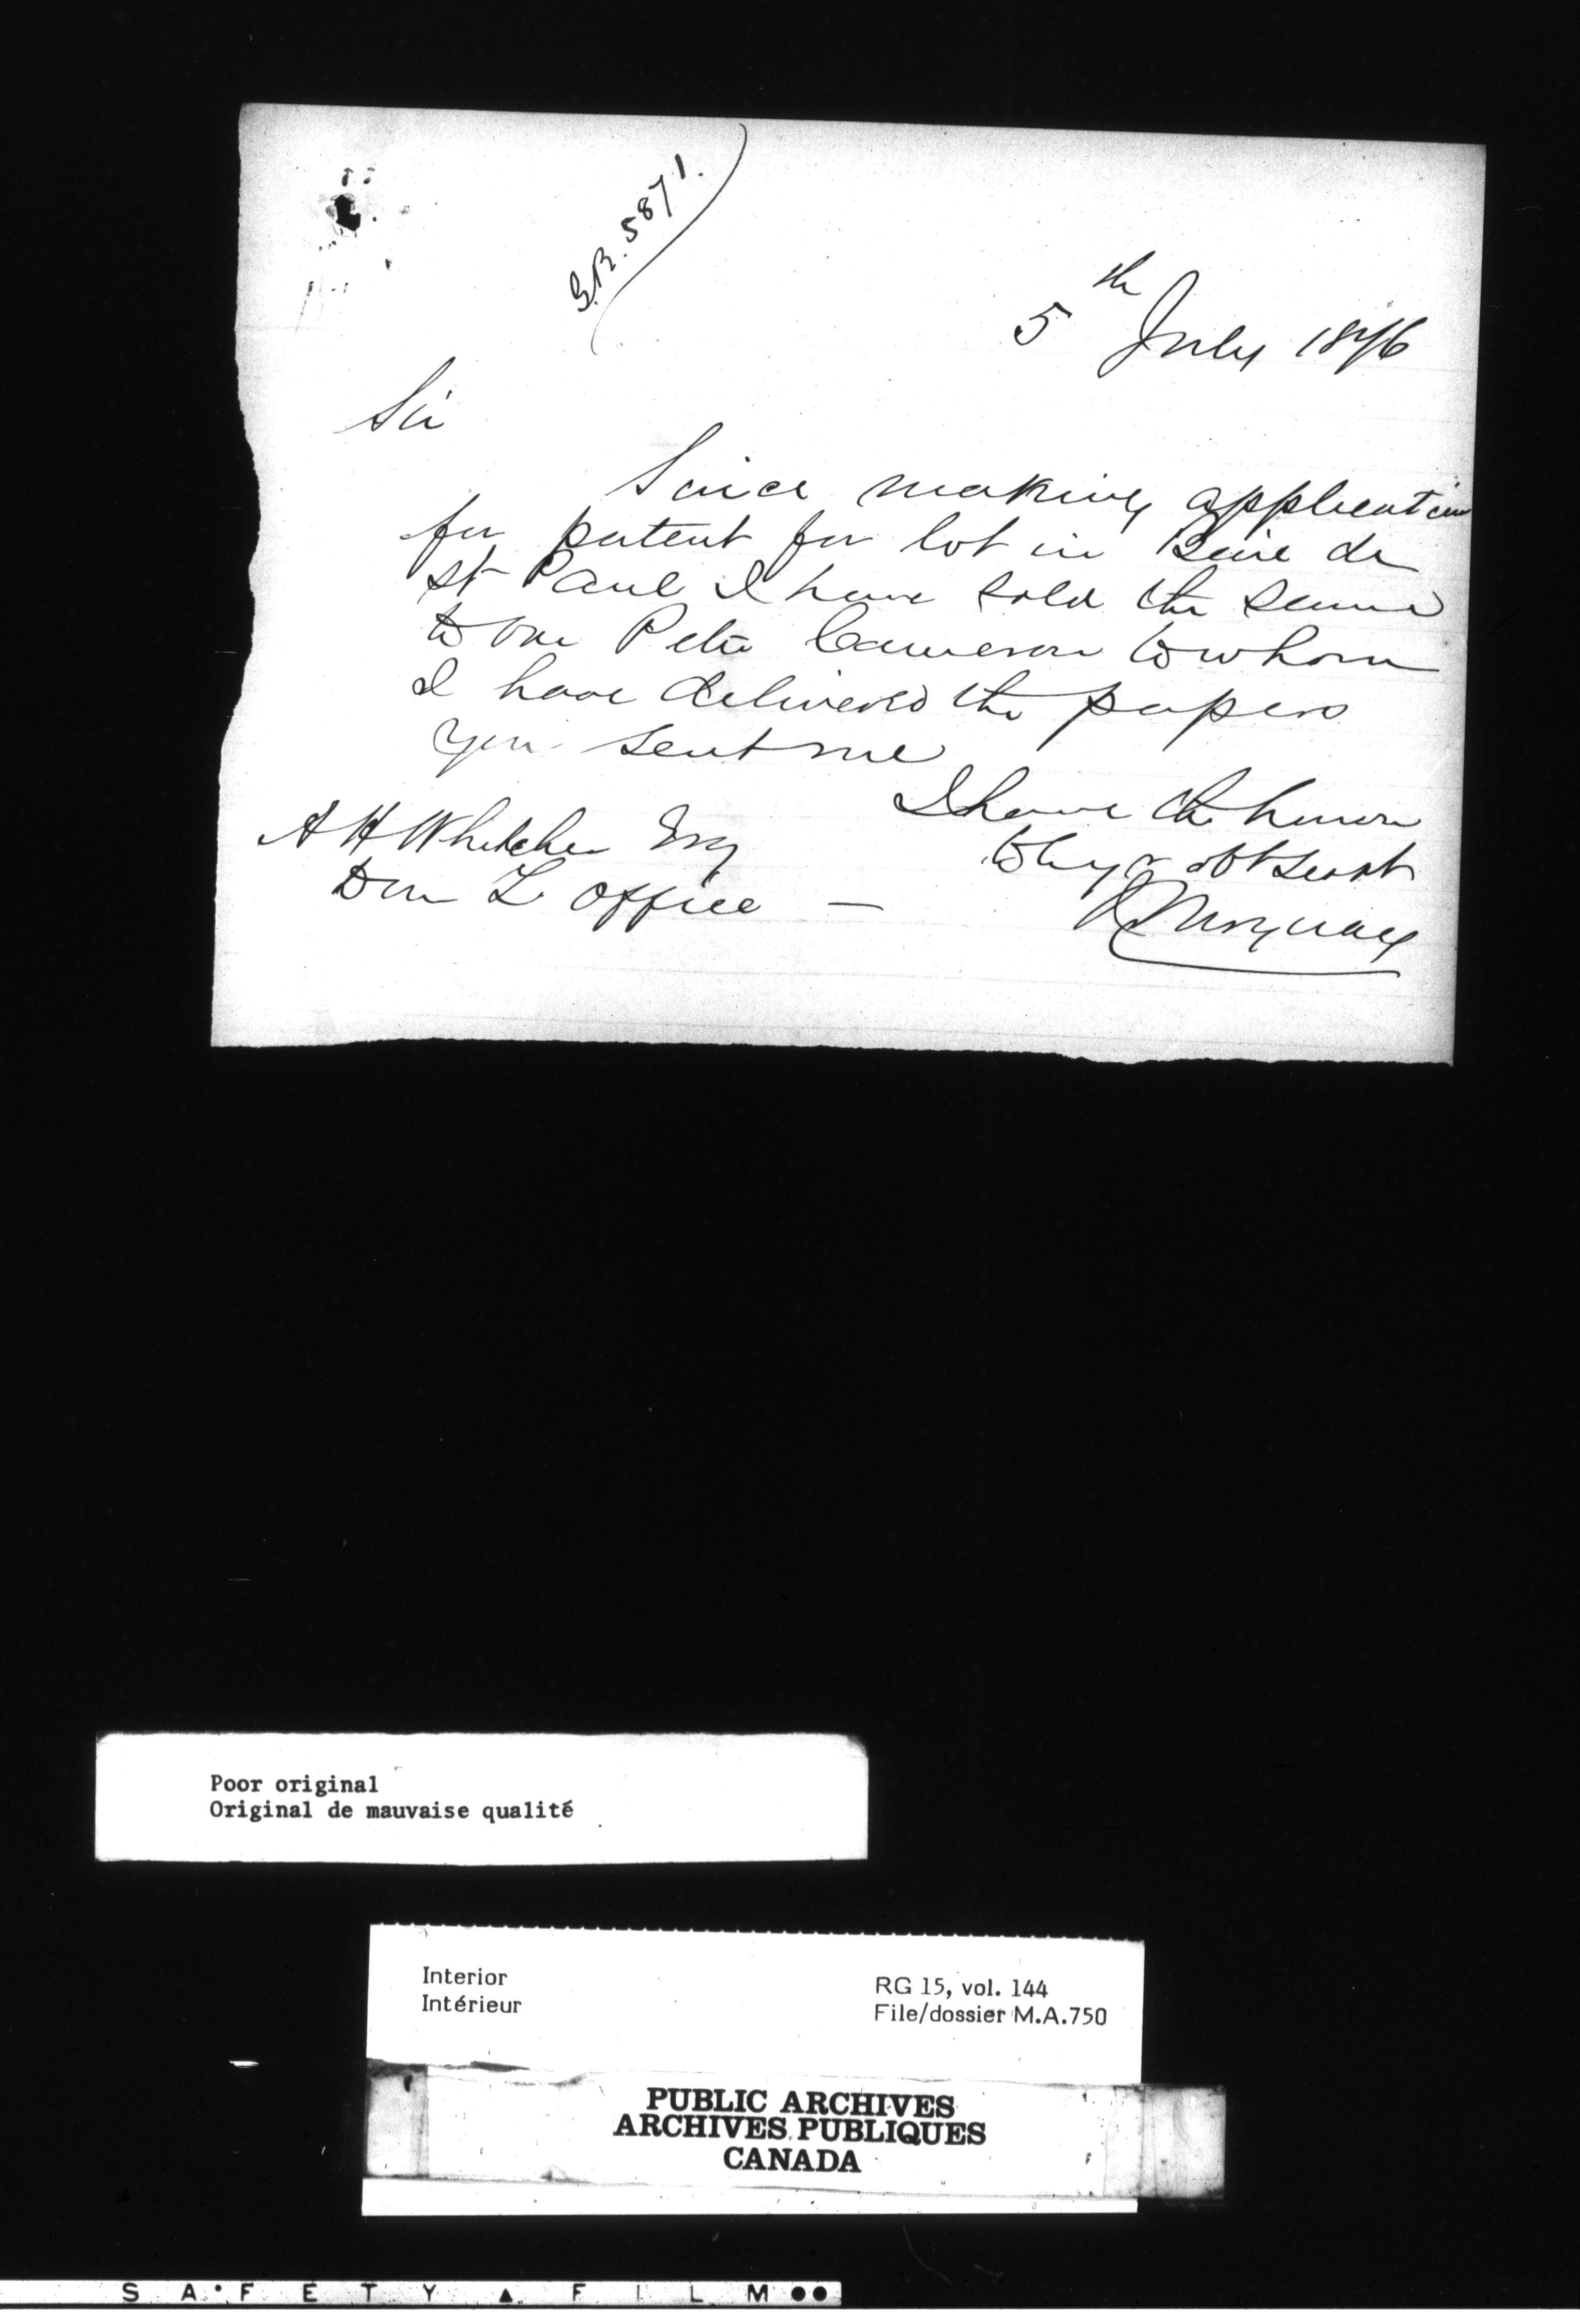 G.R. 5871.
5th July 1876
Sir
Since making application
for patent for lot in Baie de
St Paul I have sold the same
to one Peter Cameron to whom
I have delivered the papers
you sent me
I have the honor
to be yr obt servt
A H Whitcher Esq
Dom L Office —
Norquay
Poor original
Original de mauvaise qualité
Interior
Intérieur
RG 15, vol. 144
File/dossier M.A.750
PUBLIC ARCHIVES
ARCHIVES PUBLIQUES
CANADA
SAFETY FILM